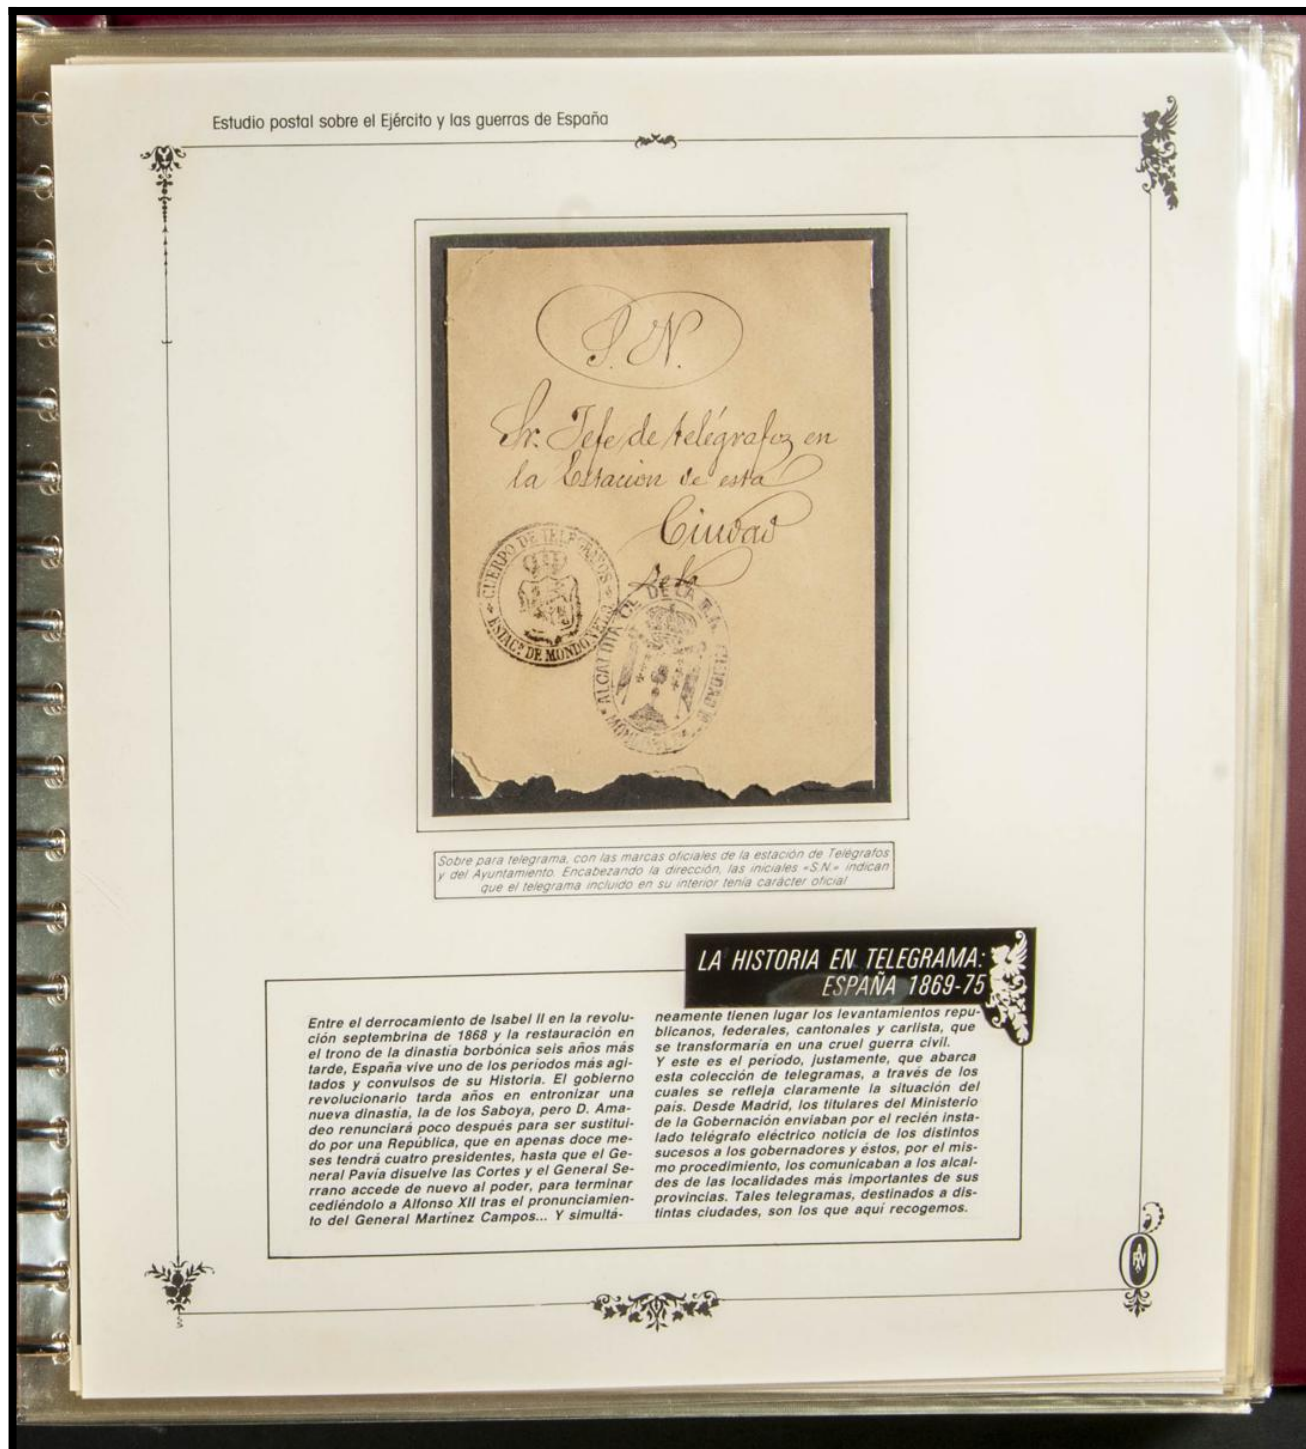 Estudio postal sobre el Ejército y las guerras de España
S. N.
Sr. Jefe de telégrafos en
la Estación de esta
Ciudad
CUERPO DE TELÉGRAFOS
ESTACN. DE MONDOÑEDO
ALCALDIA CL. DE LA M.N. CIUDAD
Sobre para telegrama, con las marcas oficiales de la estación de Telégrafos
y del Ayuntamiento. Encabezando la dirección, las iniciales «S.N.» indican
que el telegrama incluido en su interior tenía carácter oficial
LA HISTORIA EN TELEGRAMA:
ESPAÑA 1869-75
Entre el derrocamiento de Isabel II en la revolu-
ción septembrina de 1868 y la restauración en
el trono de la dinastía borbónica seis años más
tarde, España vive uno de los períodos más agi-
tados y convulsos de su Historia. El gobierno
revolucionario tarda años en entronizar una
nueva dinastía, la de los Saboya, pero D. Ama-
deo renunciará poco después para ser sustitui-
do por una República, que en apenas doce me-
ses tendrá cuatro presidentes, hasta que el Ge-
neral Pavía disuelve las Cortes y el General Se-
rrano accede de nuevo al poder, para terminar
cediéndolo a Alfonso XII tras el pronunciamien-
to del General Martínez Campos... Y simultá-
neamente tienen lugar los levantamientos repu-
blicanos, federales, cantonales y carlista, que
se transformaría en una cruel guerra civil.
Y este es el período, justamente, que abarca
esta colección de telegramas, a través de los
cuales se refleja claramente la situación del
país. Desde Madrid, los titulares del Ministerio
de la Gobernación enviaban por el recién insta-
lado telégrafo eléctrico noticia de los distintos
sucesos a los gobernadores y éstos, por el mis-
mo procedimiento, los comunicaban a los alcal-
des de las localidades más importantes de sus
provincias. Tales telegramas, destinados a dis-
tintas ciudades, son los que aquí recogemos.